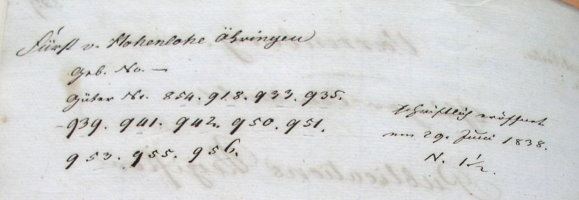 Fürst v. Hohenlohe Öhringen
Geb. No. —
Güter No. 854. 918. 933. 935.
939. 941. 942. 950. 951.
953. 955. 956.
schriftlich eröffnet
am 29. Juni 1838.
N. 1½.